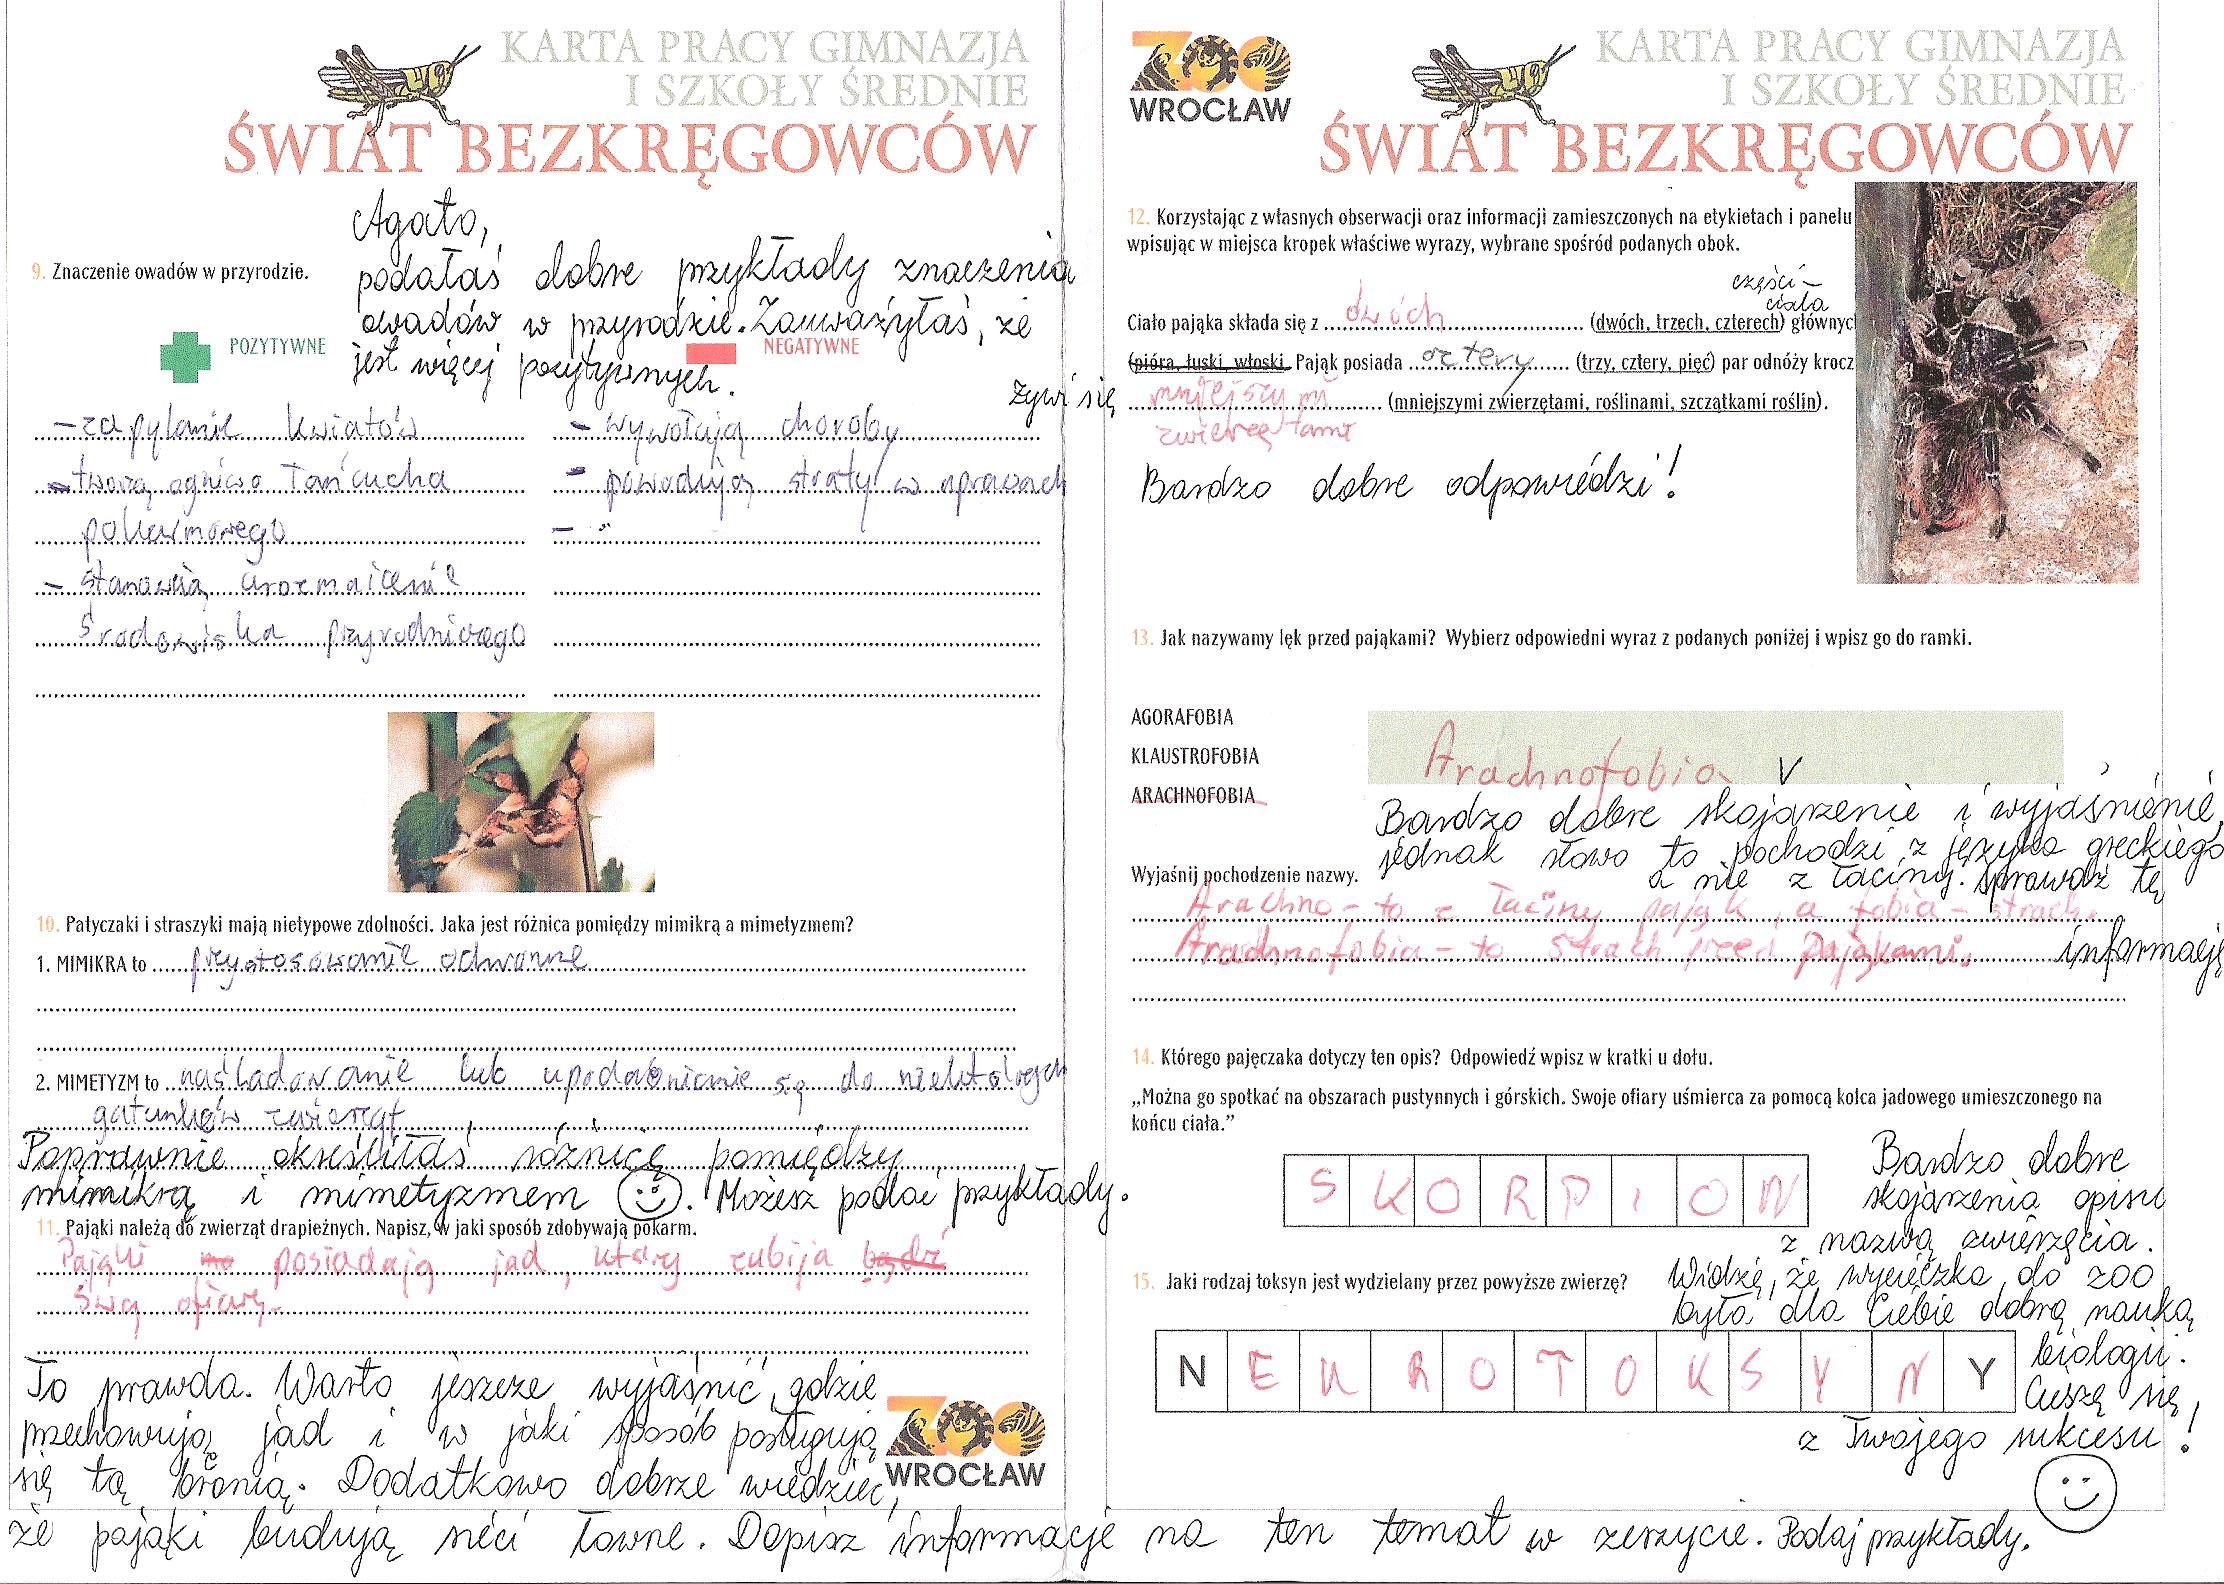 KARTA PRACY GIMNAZJA
I SZKOŁY ŚREDNIE
ŚWIAT BEZKRĘGOWCÓW
Agato,
podałaś dobre przykłady znaczenia
owadów w przyrodzie. Zauważyłaś, że
jest więcej pozytywnych.
9. Znaczenie owadów w przyrodzie.
POZYTYWNE
NEGATYWNE
- zapylanie kwiatów
- tworzą ogniwo łańcucha
pokarmowego
- stanowią urozmaicenie
środowiska przyrodniczego
- wywołują choroby
- powodują straty w uprawach
- "
10. Patyczaki i straszyki mają nietypowe zdolności. Jaka jest różnica pomiędzy mimikrą a mimetyzmem?
1. MIMIKRA to przystosowanie ochronne
2. MIMETYZM to naśladowanie lub upodabnianie się do niektórych
gatunków zwierząt
Poprawnie określiłaś różnicę pomiędzy
mimikrą i mimetyzmem. Możesz podać przykłady.
11. Pająki należą do zwierząt drapieżnych. Napisz, w jaki sposób zdobywają pokarm.
Pająki ma posiadają jad, który zabija bądź
swą ofiarę.
To prawda. Warto jeszcze wyjaśnić, gdzie
przechowują jad i w jaki sposób posługują
się tą bronią. Dodatkowo dobrze wiedzieć,
że pająki budują sieci łowne. Dopisz informacje na ten temat w zeszycie. Podaj przykłady.
ZOO
WROCŁAW
ZOO
WROCŁAW
KARTA PRACY GIMNAZJA
I SZKOŁY ŚREDNIE
ŚWIAT BEZKRĘGOWCÓW
12. Korzystając z własnych obserwacji oraz informacji zamieszczonych na etykietach i panelu
wpisując w miejsca kropek właściwe wyrazy, wybrane spośród podanych obok.
części
ciała
Ciało pająka składa się z dwóch (dwóch, trzech, czterech) głównyc
(pióra, łuski, włoski. Pająk posiada cztery (trzy, cztery, pięć) par odnóży krocz
żywi się mniejszymi (mniejszymi zwierzętami, roślinami, szczątkami roślin).
zwierzętami
Bardzo dobre odpowiedzi!
13. Jak nazywamy lęk przed pająkami? Wybierz odpowiedni wyraz z podanych poniżej i wpisz go do ramki.
AGORAFOBIA
KLAUSTROFOBIA
ARACHNOFOBIA
Arachnofobia V
Bardzo dobre skojarzenie i wyjaśnienie,
jednak słowo to pochodzi z języka greckiego
a nie z łaciny. Sprawdź tę
informację
Wyjaśnij pochodzenie nazwy.
Arachno - to z łaciny pająk, a fobia - strach.
Arachnofobia - to strach przed pająkami.
14. Którego pajęczaka dotyczy ten opis? Odpowiedź wpisz w kratki u dołu.
„Można go spotkać na obszarach pustynnych i górskich. Swoje ofiary uśmierca za pomocą kolca jadowego umieszczonego na
końcu ciała.”
SKORPION
Bardzo dobre
skojarzenia opisu
z nazwą zwierzęcia.
15. Jaki rodzaj toksyn jest wydzielany przez powyższe zwierzę?
NEUROTOKSYNY
Widzę, że wycieczka do zoo
była dla Ciebie dobrą nauką
biologii.
Cieszę się,
z Twojego sukcesu!